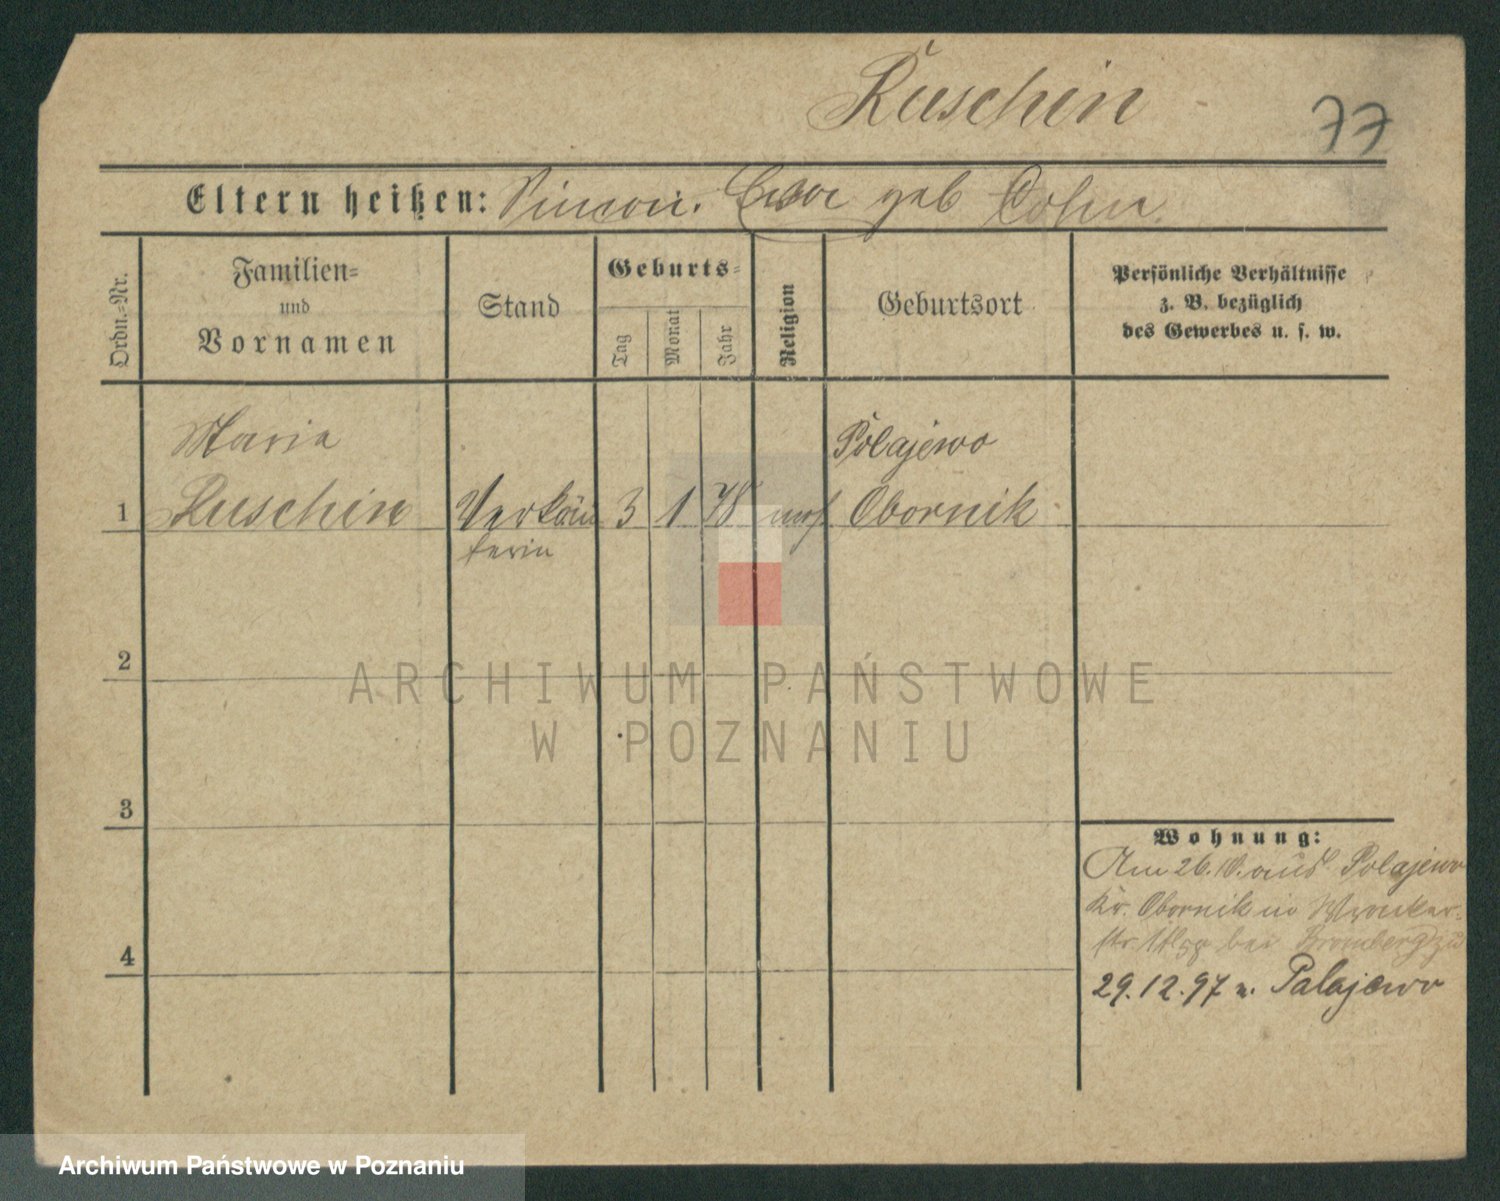 Ruschin
77
Eltern heißen: Simon. geb Cohn
Ordn.=Nr.
Familien=
und
Vornamen
Stand
Geburts=
Tag
Monat
Jahr
Religion
Geburtsort
Persönliche Verhältnisse
z. B. bezüglich
des Gewerbes u. s. w.
Maria
Polajewo
1 Ruschin Verkäu 3 1 78 mos Obornik
ferin
2
3
4
Wohnung:
Am 26. aus Polajewo
Kr. Obornik in Wronker
str. bei Bromberg zu
29.12.97 n. Polajewo
ARCHIWUM PAŃSTWOWE
W POZNANIU
Archiwum Państwowe w Poznaniu